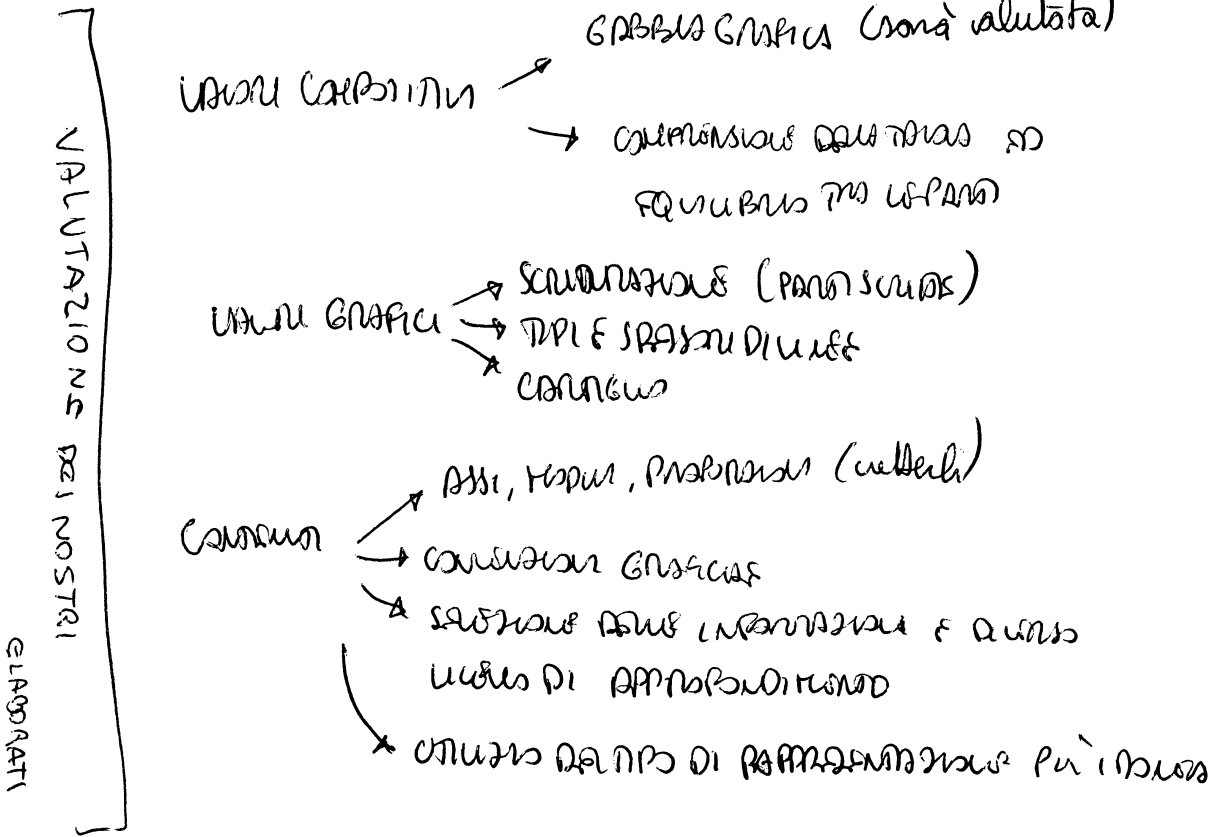 VALUTAZIONE DEI NOSTRI
ELABORATI
VALORI COMPOSITIVI
GABBIA GRAFICA (sarà valutata)
COMPRENSIONE DELLA TAVOLA ED
EQUILIBRIO TRA LE PARTI
VALORI GRAFICI
SCRITTURAZIONE (PARTI SCRITTE)
TIPI E SPESSORI DI LINEE
CARATTERI
CONTENUTI
ASSI, MODULI, PROPORZIONI (metterli)
CONVENZIONI GRAFICHE
SELEZIONE DELLE INFORMAZIONI E DIVERSO
LIVELLO DI APPROFONDIMENTO
UTILIZZO DEL TIPO DI RAPPRESENTAZIONE PIÙ IDONEA